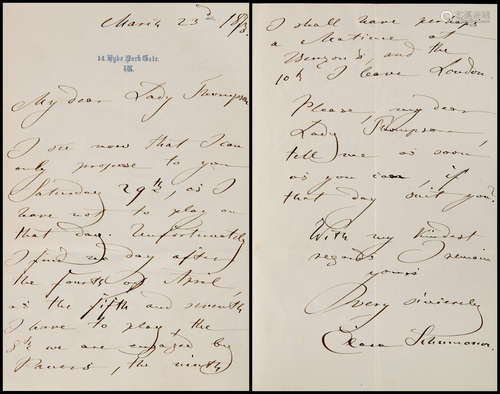 March 23rd 1873.
14 Hyde Park Gate.
My dear Lady Thompson
I see now that I can
only propose to you
Saturday 29th, as I
have not to play on
that day. Unfortunately
I find no day after
the fourth of April
as the fifth and seventh
I have to play, the
8th we are engaged by
Pauers, the ninth
I shall have perhaps
a Matinee at
Benzon's and the
10th I leave London.
Please, my dear
Lady Thompson,
tell me as soon,
as you can, if
that day suit you?
With my kindest
regards I remain
yours
very sincerely
Clara Schumann.